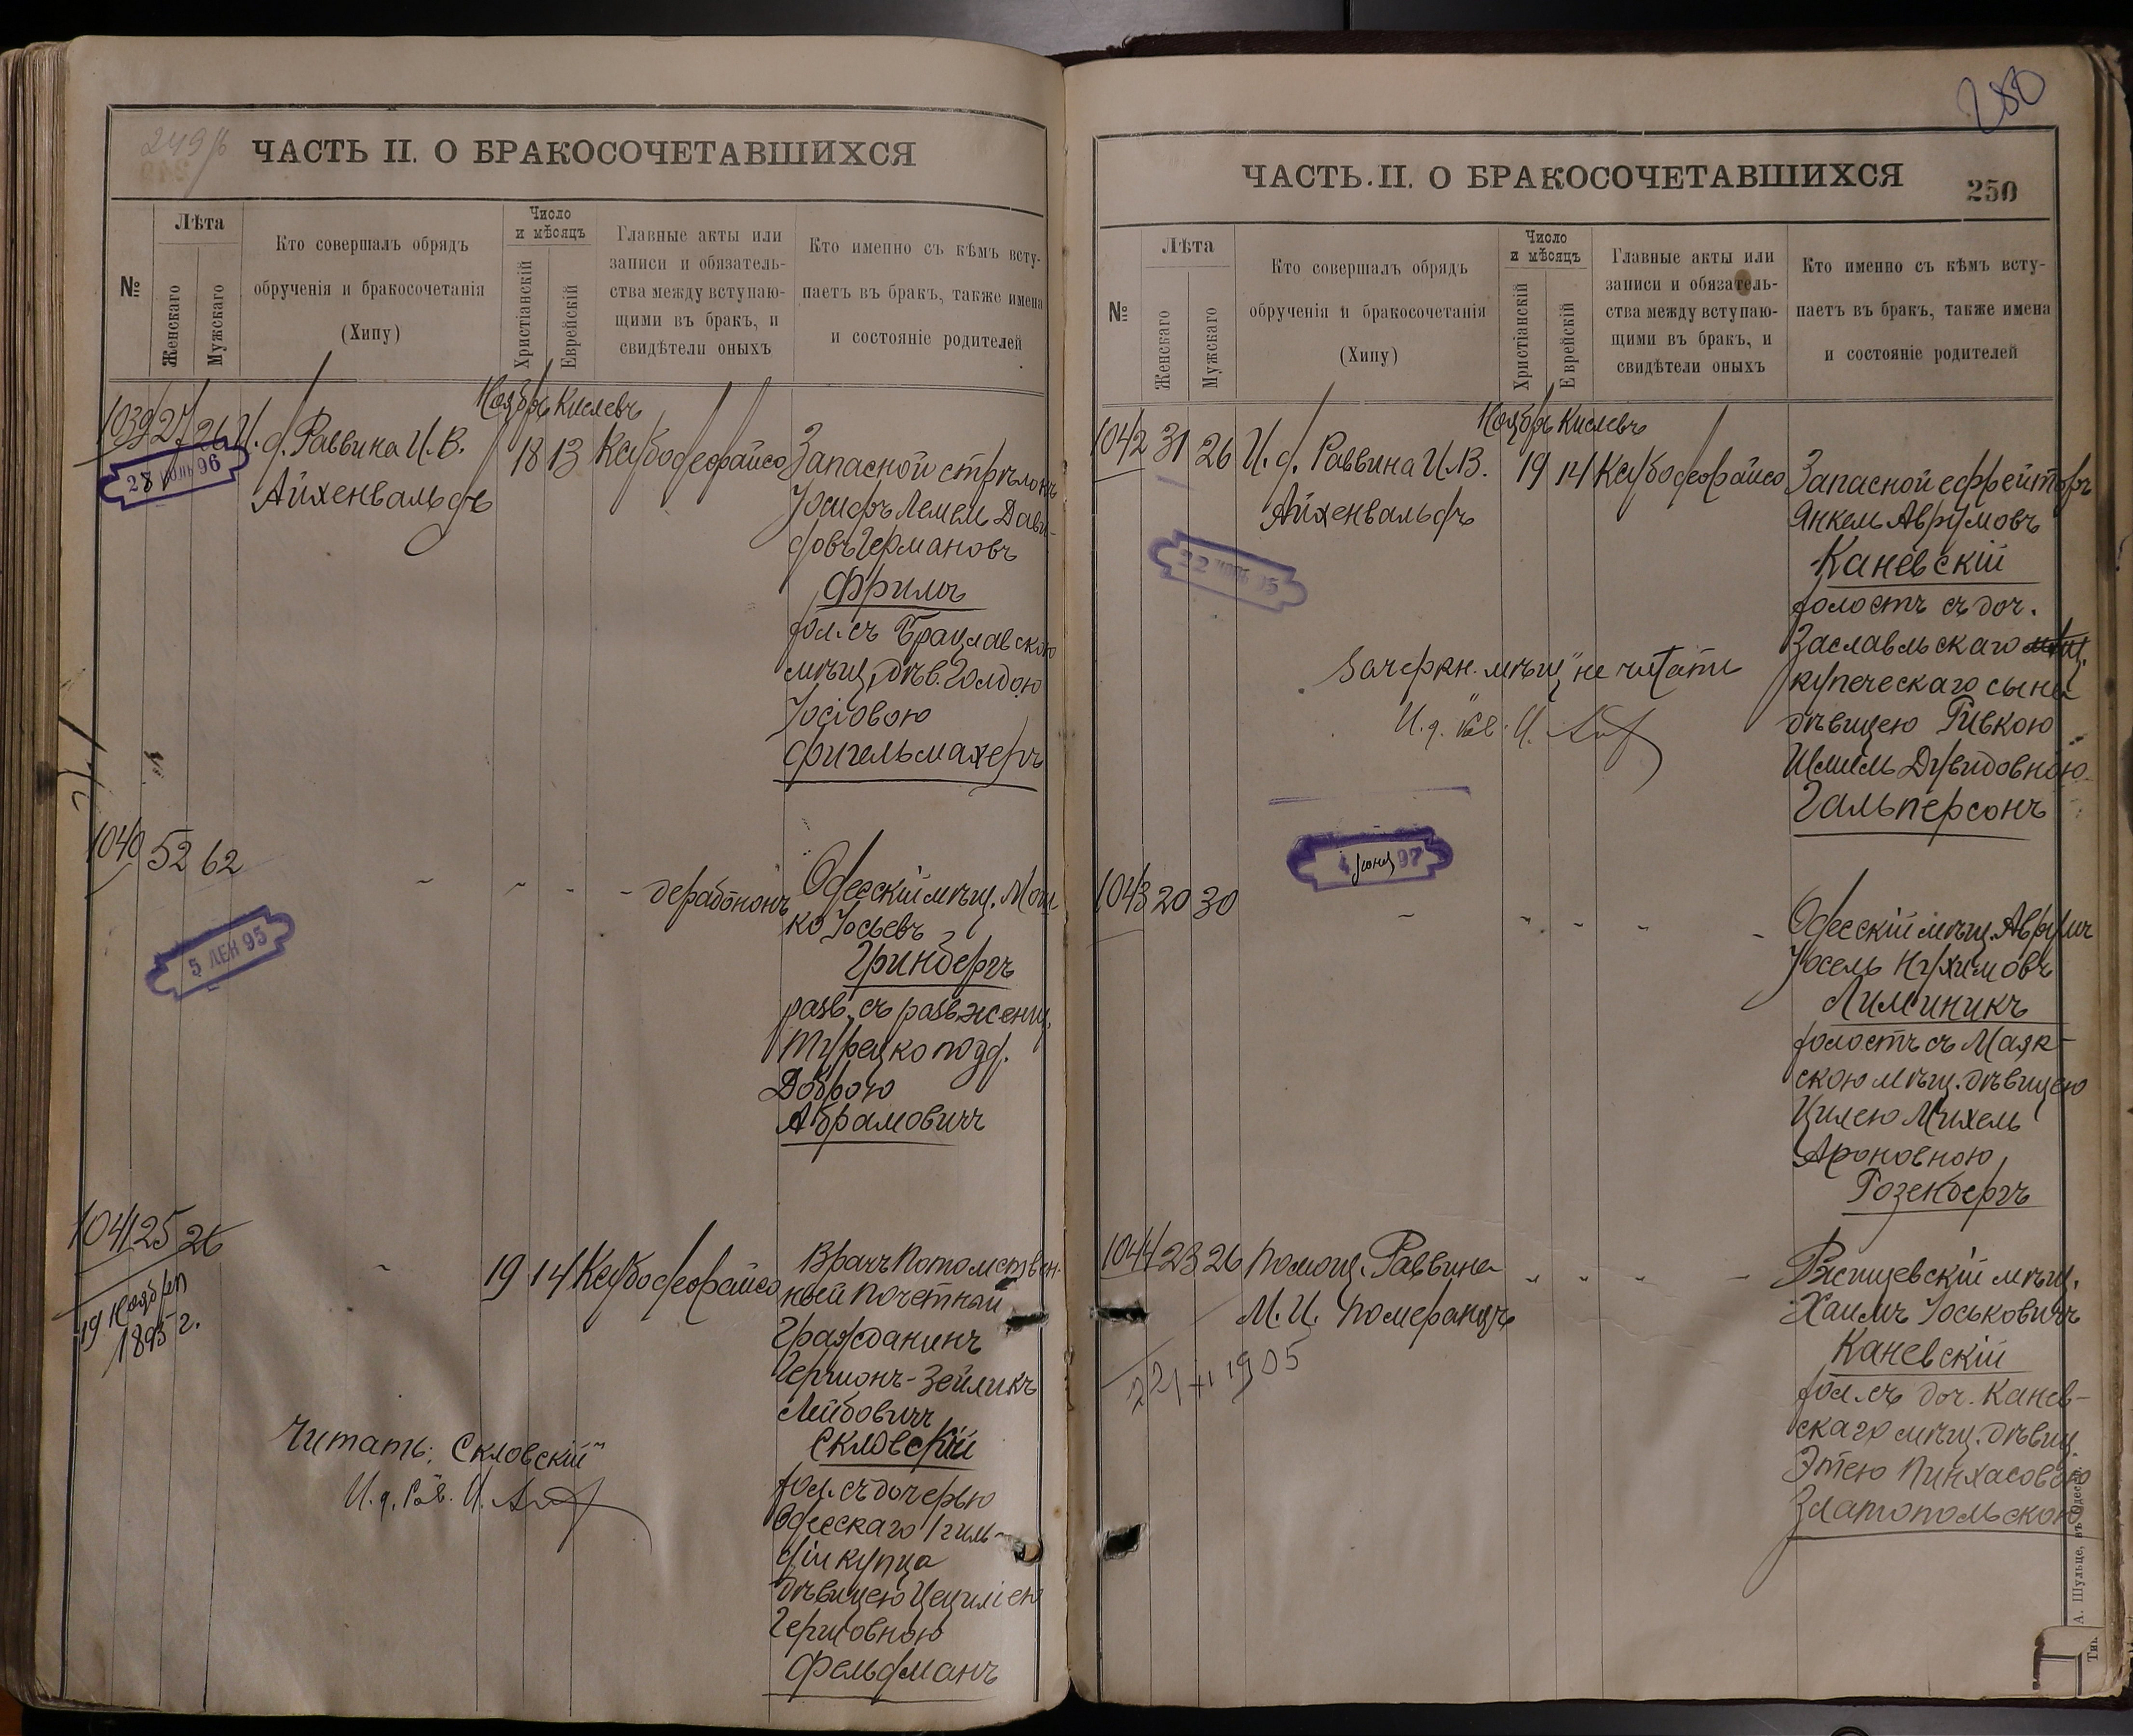 249 б
ЧАСТЬ II. О БРАКОСОЧЕТАВШИХСЯ
№
Лѣта
Женскаго
Мужскаго
Кто совершалъ обрядъ
обрученія и бракосочетанія
(Хипу)
Число
и мѣсяцъ
Христіанскій
Еврейскій
Главные акты или
записи и обязатель-
ства между вступаю-
щими въ бракъ, и
свидѣтели оныхъ
Кто именно съ кѣмъ всту-
паетъ въ бракъ, также имена
и состояніе родителей
Ноябрь Кислевъ
1039 27 26 И. д. Раввина И. В.
Айхенвальдъ
18 13 Ксубо дерайсо
28 96
Запасной стрѣлокъ
Іосифъ Лемель Дави-
довъ Германовъ
Фримъ
хол. съ Брацлавскою
мѣщ. дѣв. Голдою
Іосіовою
Фигельмахеръ
1040 52 62
дерабононъ
5 ДЕК 95
Одесскій мѣщ. Мош-
ко Іосьевъ
Гринбергъ
разв. съ разв. женщ.
Турецкоподд.
Доброю
Абрамовичъ
1041 25 26
19 Ноября
1895 г.
19 14 Ксубо дерайсо
Врачъ Потомствен-
ный почетный
Гражданинъ
Гершонъ-Зейликъ
Лейбовичъ
Скловскій
хол. съ дочерью
Одесскаго 1 гиль-
діи купца
дѣвицею Цециліею
Гершовною
Фельдманъ
Читать: Скловскій"
И. д. Рав. И.
280
ЧАСТЬ II. О БРАКОСОЧЕТАВШИХСЯ
250
№
Лѣта
Женскаго
Мужскаго
Кто совершалъ обрядъ
обрученія и бракосочетанія
(Хипу)
Число
и мѣсяцъ
Христіанскій
Еврейскій
Главные акты или
записи и обязатель-
ства между вступаю-
щими въ бракъ, и
свидѣтели оныхъ
Кто именно съ кѣмъ всту-
паетъ въ бракъ, также имена
и состояніе родителей
Ноябрь Кислевъ
1042 31 26 И. д. Раввина И. В.
Айхенвальдъ
19 14 Ксубо дерайсо
22 95
Запасной ефрейторъ
Янкель Аврумовъ
Каневскій
холостъ съ доч.
Заславльскаго мѣщ.
купеческаго сына
дѣвицею Ривкою
Шмиль Дувидовною
Гальперсонъ
Зачеркн. мѣщ" не читать
И. д. Рав. И.
4 97
1043 20 30
Одесскій мѣщ. Аврумъ
Іосель Нухимовъ
Лимсиникъ
холостъ съ Маяк-
скою мѣщ. дѣвицею
Цилею Михель
Ароновною
Розенбергъ
1044 23 26 Помощ. Раввина
М. И. Померанцъ
22/XI 1905
Ржищевскій мѣщ.
Хаимъ Іоськовичъ
Каневскій
хол. съ доч. Канев-
скаго мѣщ. дѣвиц.
Этею Пинхасовою
Златопольскою
Тип. А. Шульце, въ Одессѣ.